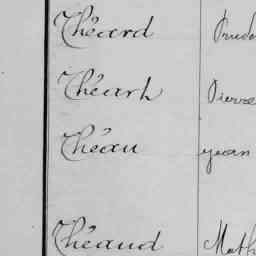 Théard Prude
Théarh Pierre
Théau Jean
Théaud Math